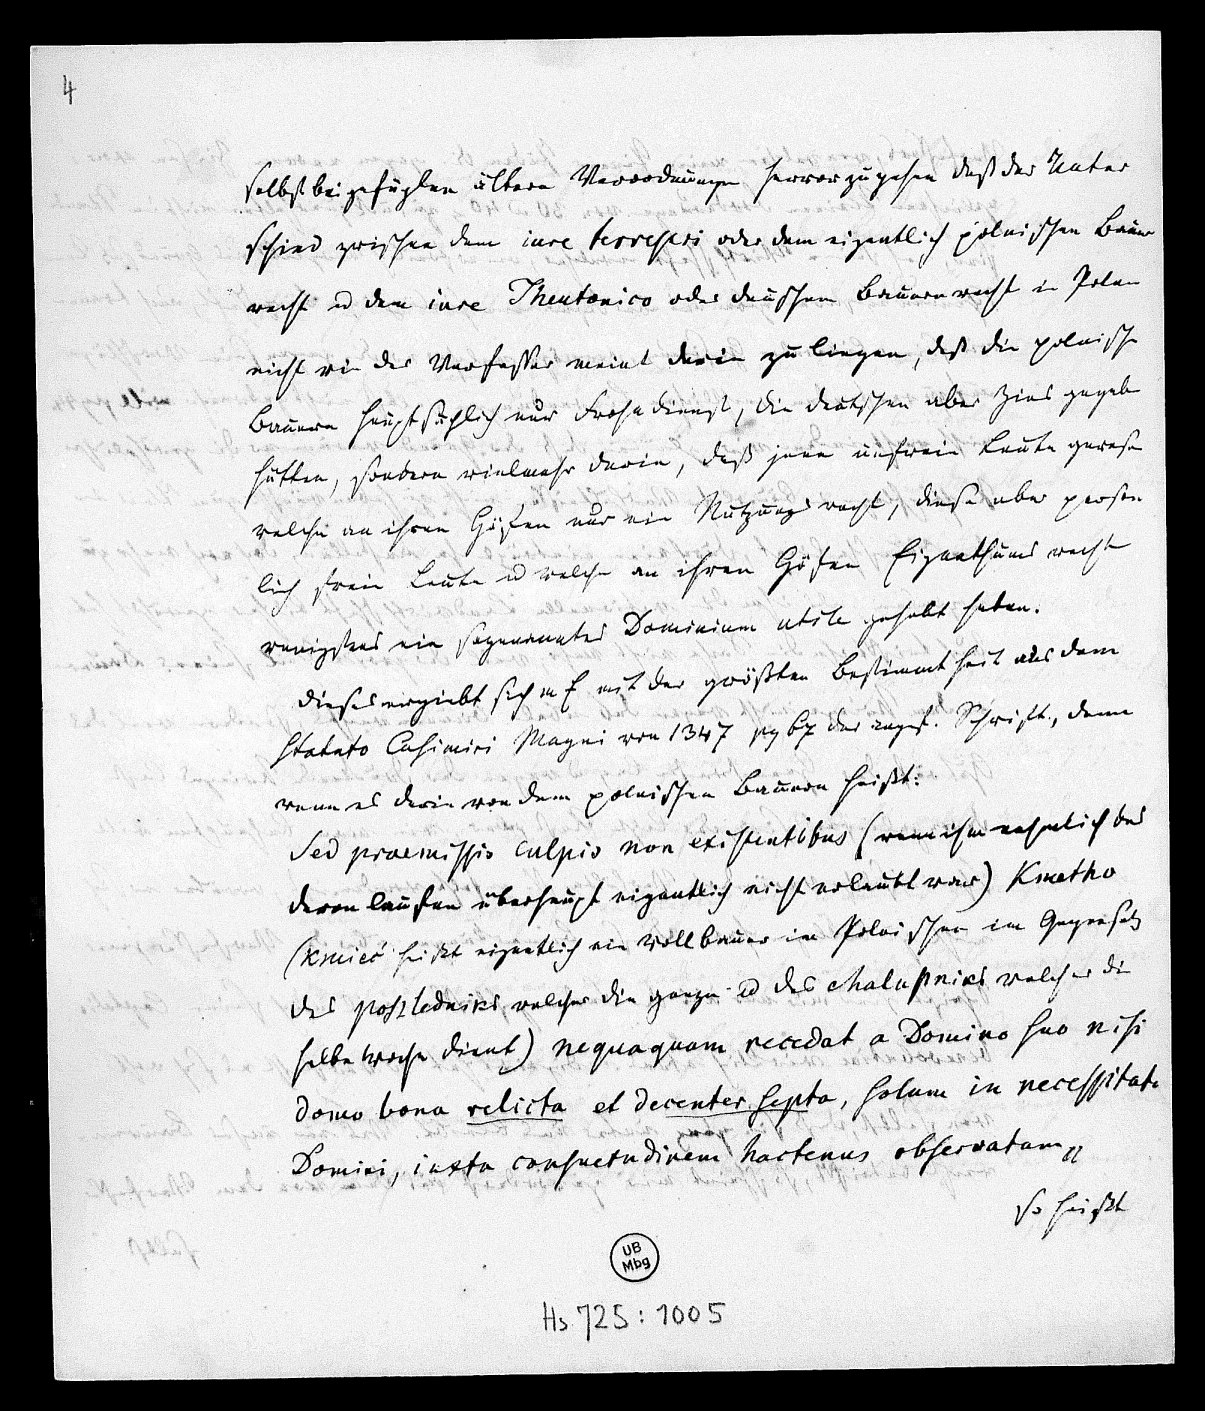 4
selbst beigefügten ältern Verordnungen hervorzugehen daß der Unter
schied zwischen dem iure terrestri oder dem eigentlich polnischen Bauer
recht u dem iure Theutonico oder deutschem Bauernrecht in Polen
nicht wie der Verfasser meint darin zu liegen, daß die polnische
Bauern hauptsächlich nur Frohndienst, die deutschen aber Zins gegeben
hätten, sondern vielmehr darin, daß jene unfreie Leute gewesen
welche an ihren Höfen nur ein Nutzungsrecht, diese aber persön
lich freie Leute u welche an ihren Höfen Eigenthums rechte
wenigstens ein sogenanntes Dominium utile gehabt haben.
Dieses ergiebt sich m E mit der größten Bestimmtheit aus dem
Statuto Casimiri Magni von 1347 pg 67 der angef. Schrift., denn
wenn es darin von dem polnischen Bauern heißt:
Sed praemissis culpis non existentibus (wenn ihm nehmlich das
davonlaufen überhaupt eigentlich nicht erlaubt war) Kmetho
(Kmieć heißt eigentlich ein Vollbauer im Polnischen im Gegensatz
des poslledniks welcher die ganze u des chalupniks welcher die
halbe Woche dient) nequaquam recedat a Domino suo nisi
domo bona relicta et decenter septa, solum in necessitate
Domini, iuxta consuetudinem hactenus observatam„
so heißt
UB
Mbg
Hs 725 : 1005